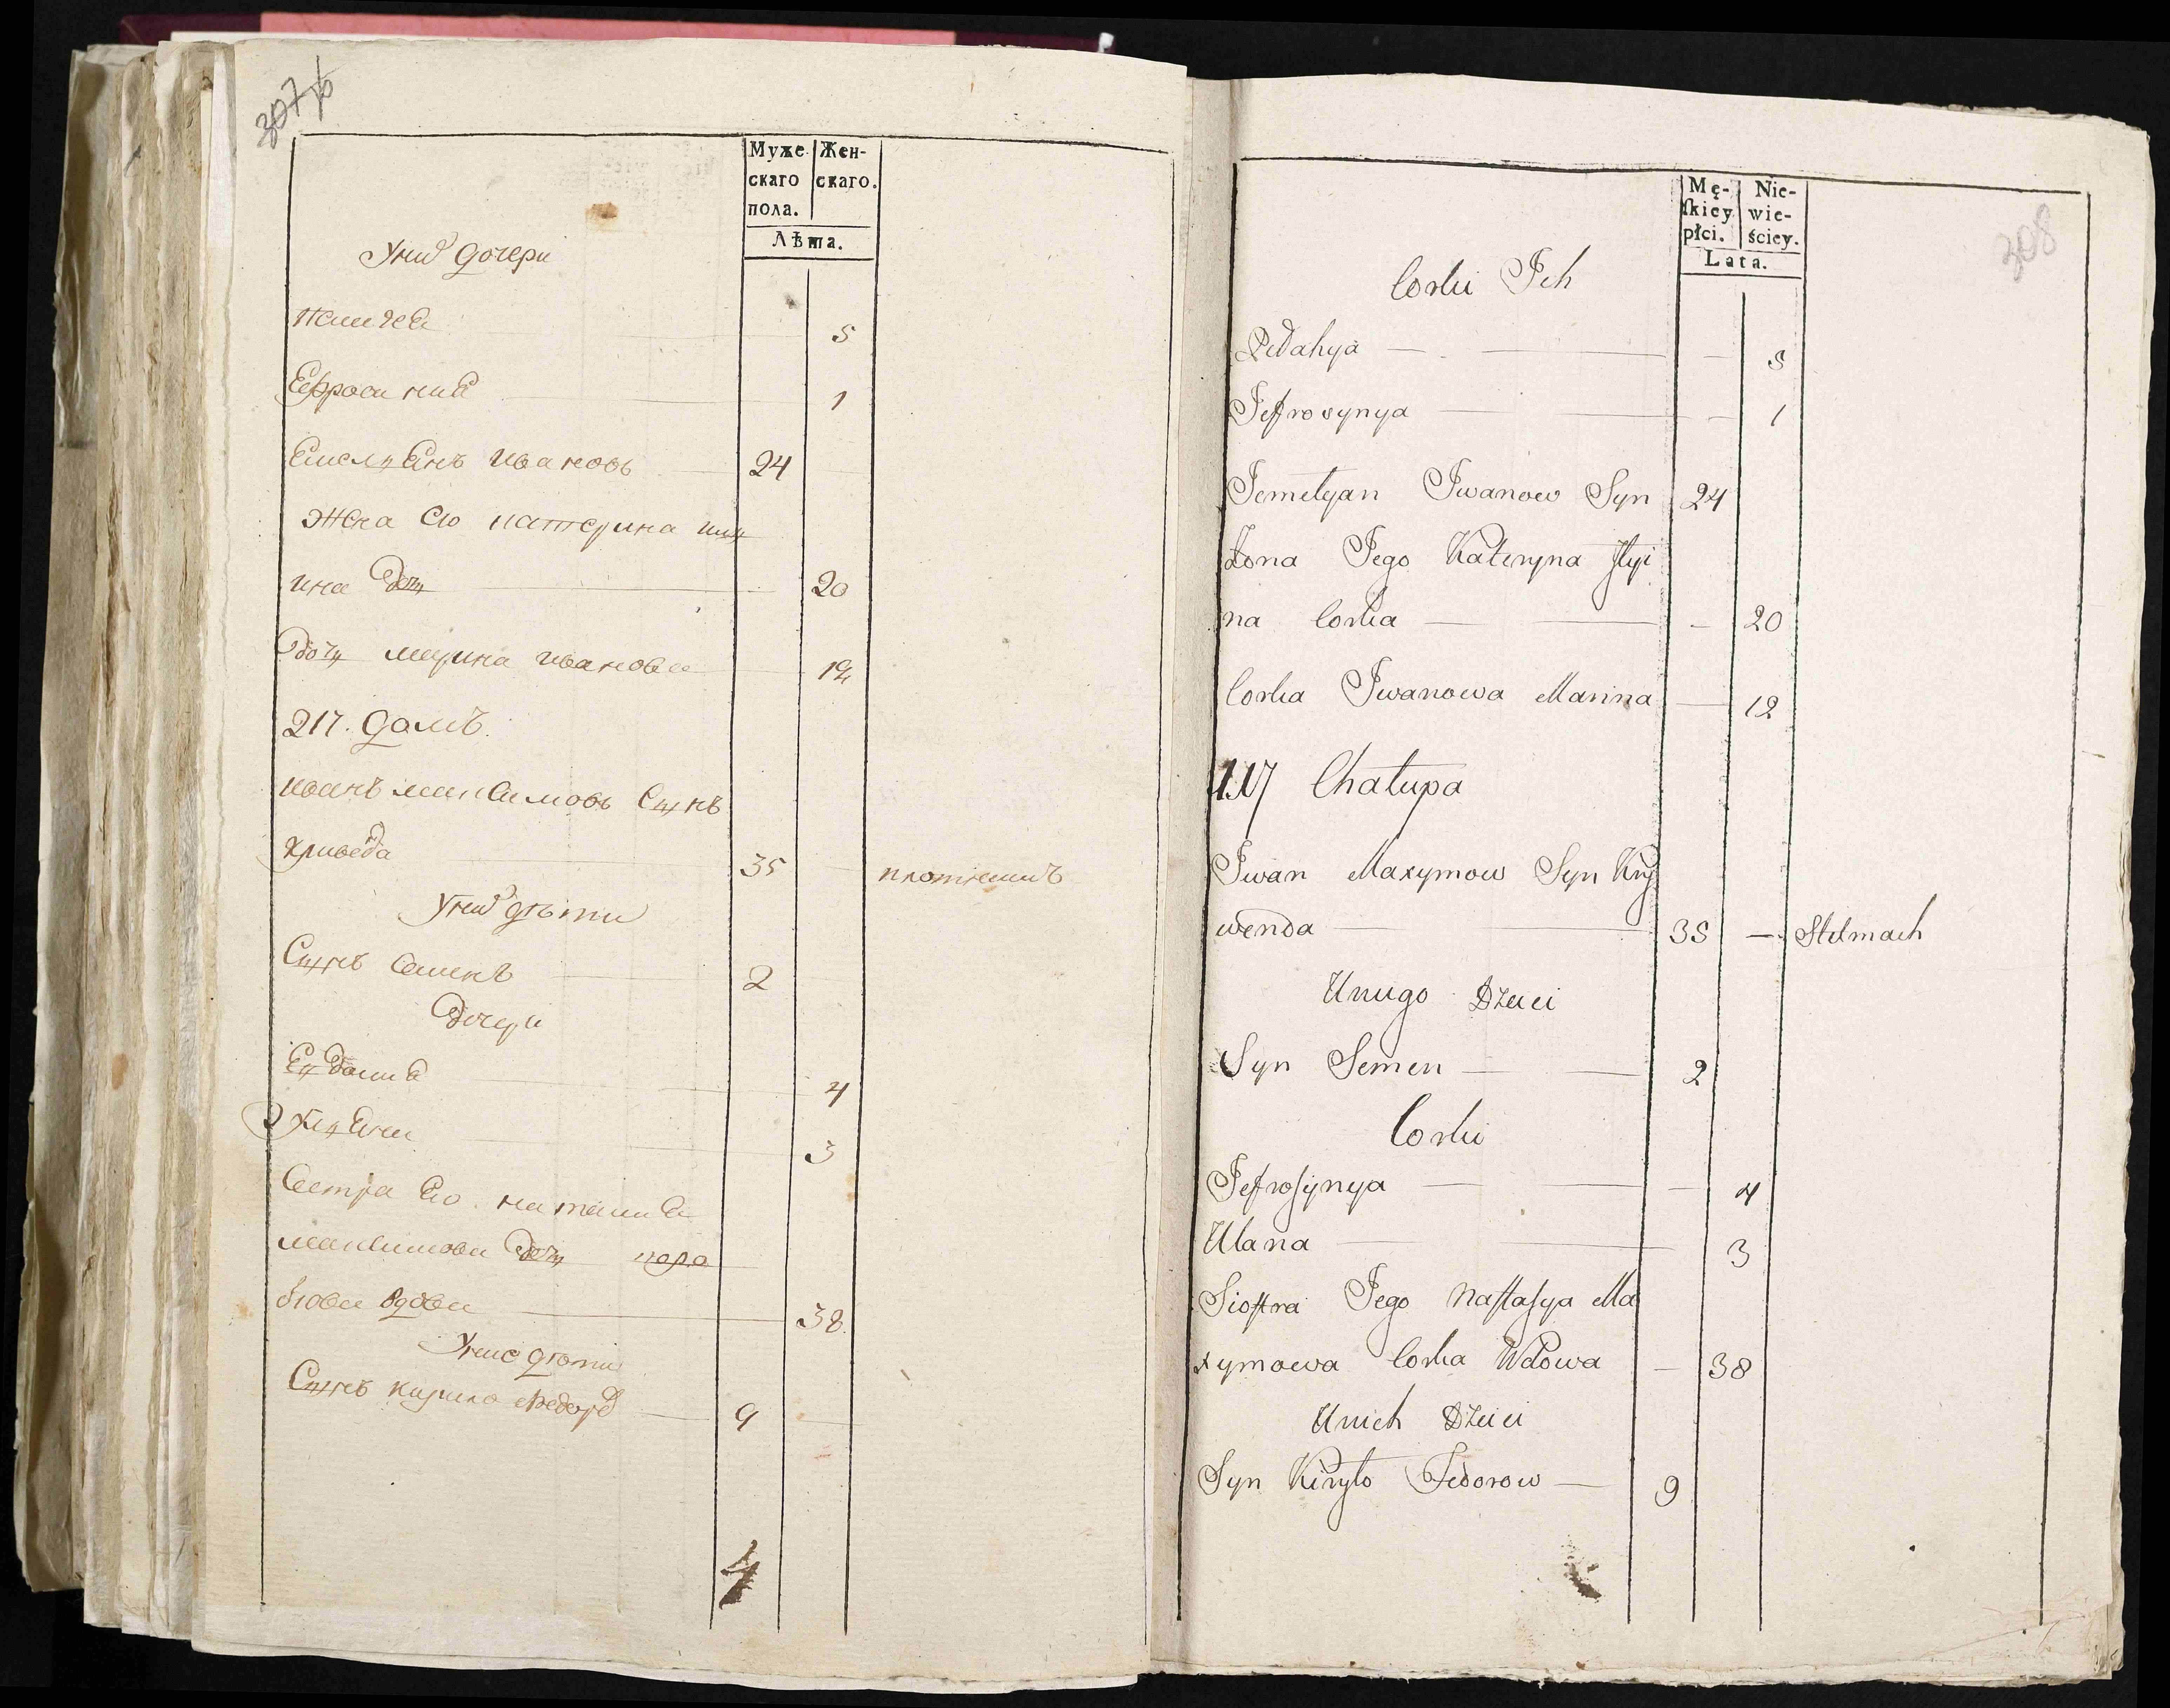 307
Муже
скаго
пола.
Жен-
скаго.
Лѣта.
У них дочери
5
Ефросиния 1
Емелiянъ Ивановъ 24
Жена Его катерина или
ина дочь 20
дочь марина иванова 12
217. домъ.
иванъ максимовъ Сынъ
криведа 35 плотникъ
У них дѣти
Сынъ Семенъ 2
дочери
Евдокия 4
3
Сестра Его настасия
максимова дочь
вдова 38
У них дѣти
Сынъ кирило федоров 9
4
308
Mę-
ſkiey
płci.
Nie-
wie-
ściey.
Lata.
Corki Ich
— — 5
Jefrosynya — — 1
Jemelyan Iwanow Syn 24
Żona Jego Kateryna Jlyi
na Corka — — 20
Corka Iwanowa Marina — 12
217 Chałupa
Iwan Maxymow Syn Kry
wenda — 35 — Stelmach
Unugo Dzieci
Syn Semen — 2
Corki
Jefroſynya — — 4
Ulana — 3
Sioſtra Jego Naſtaſya Ma
xymowa Corka Wdowa — 38
Unich Dzieci
Syn Kiryło Fedorow — 9